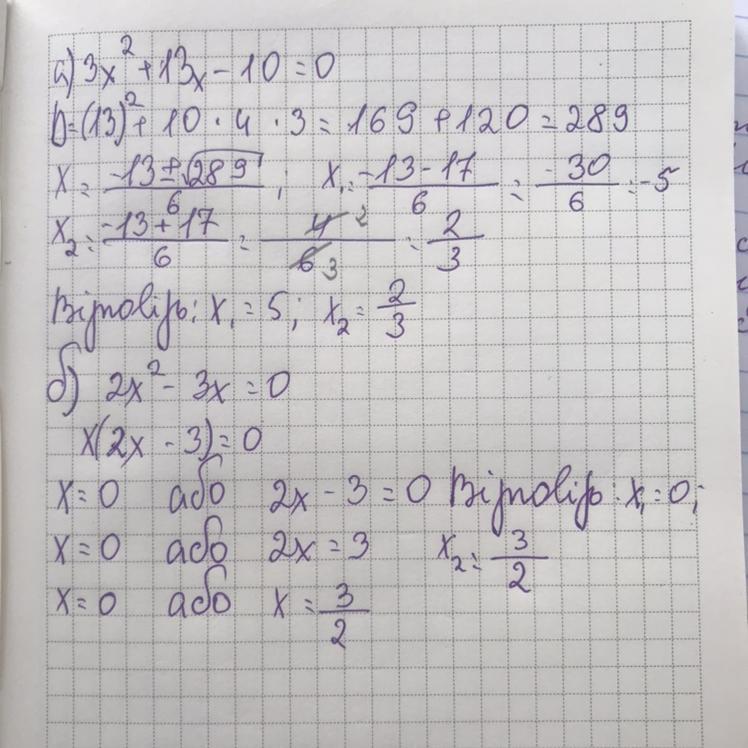 а) 3x² + 13x - 10 = 0
D = (13)² + 10 · 4 · 3 = 169 + 120 = 289
x = (-13 ± √289)/6 ; x₁ = (-13 - 17)/6 = -30/6 = -5
x₂ = (-13 + 17)/6 = 4 2/6 3 = 2/3
Відповідь: x₁ = 5; x₂ = 2/3
б) 2x² - 3x = 0
x(2x - 3) = 0
x = 0 або 2x - 3 = 0 Відповідь: x₁ = 0;
x = 0 або 2x = 3 x₂ = 3/2
x = 0 або x = 3/2